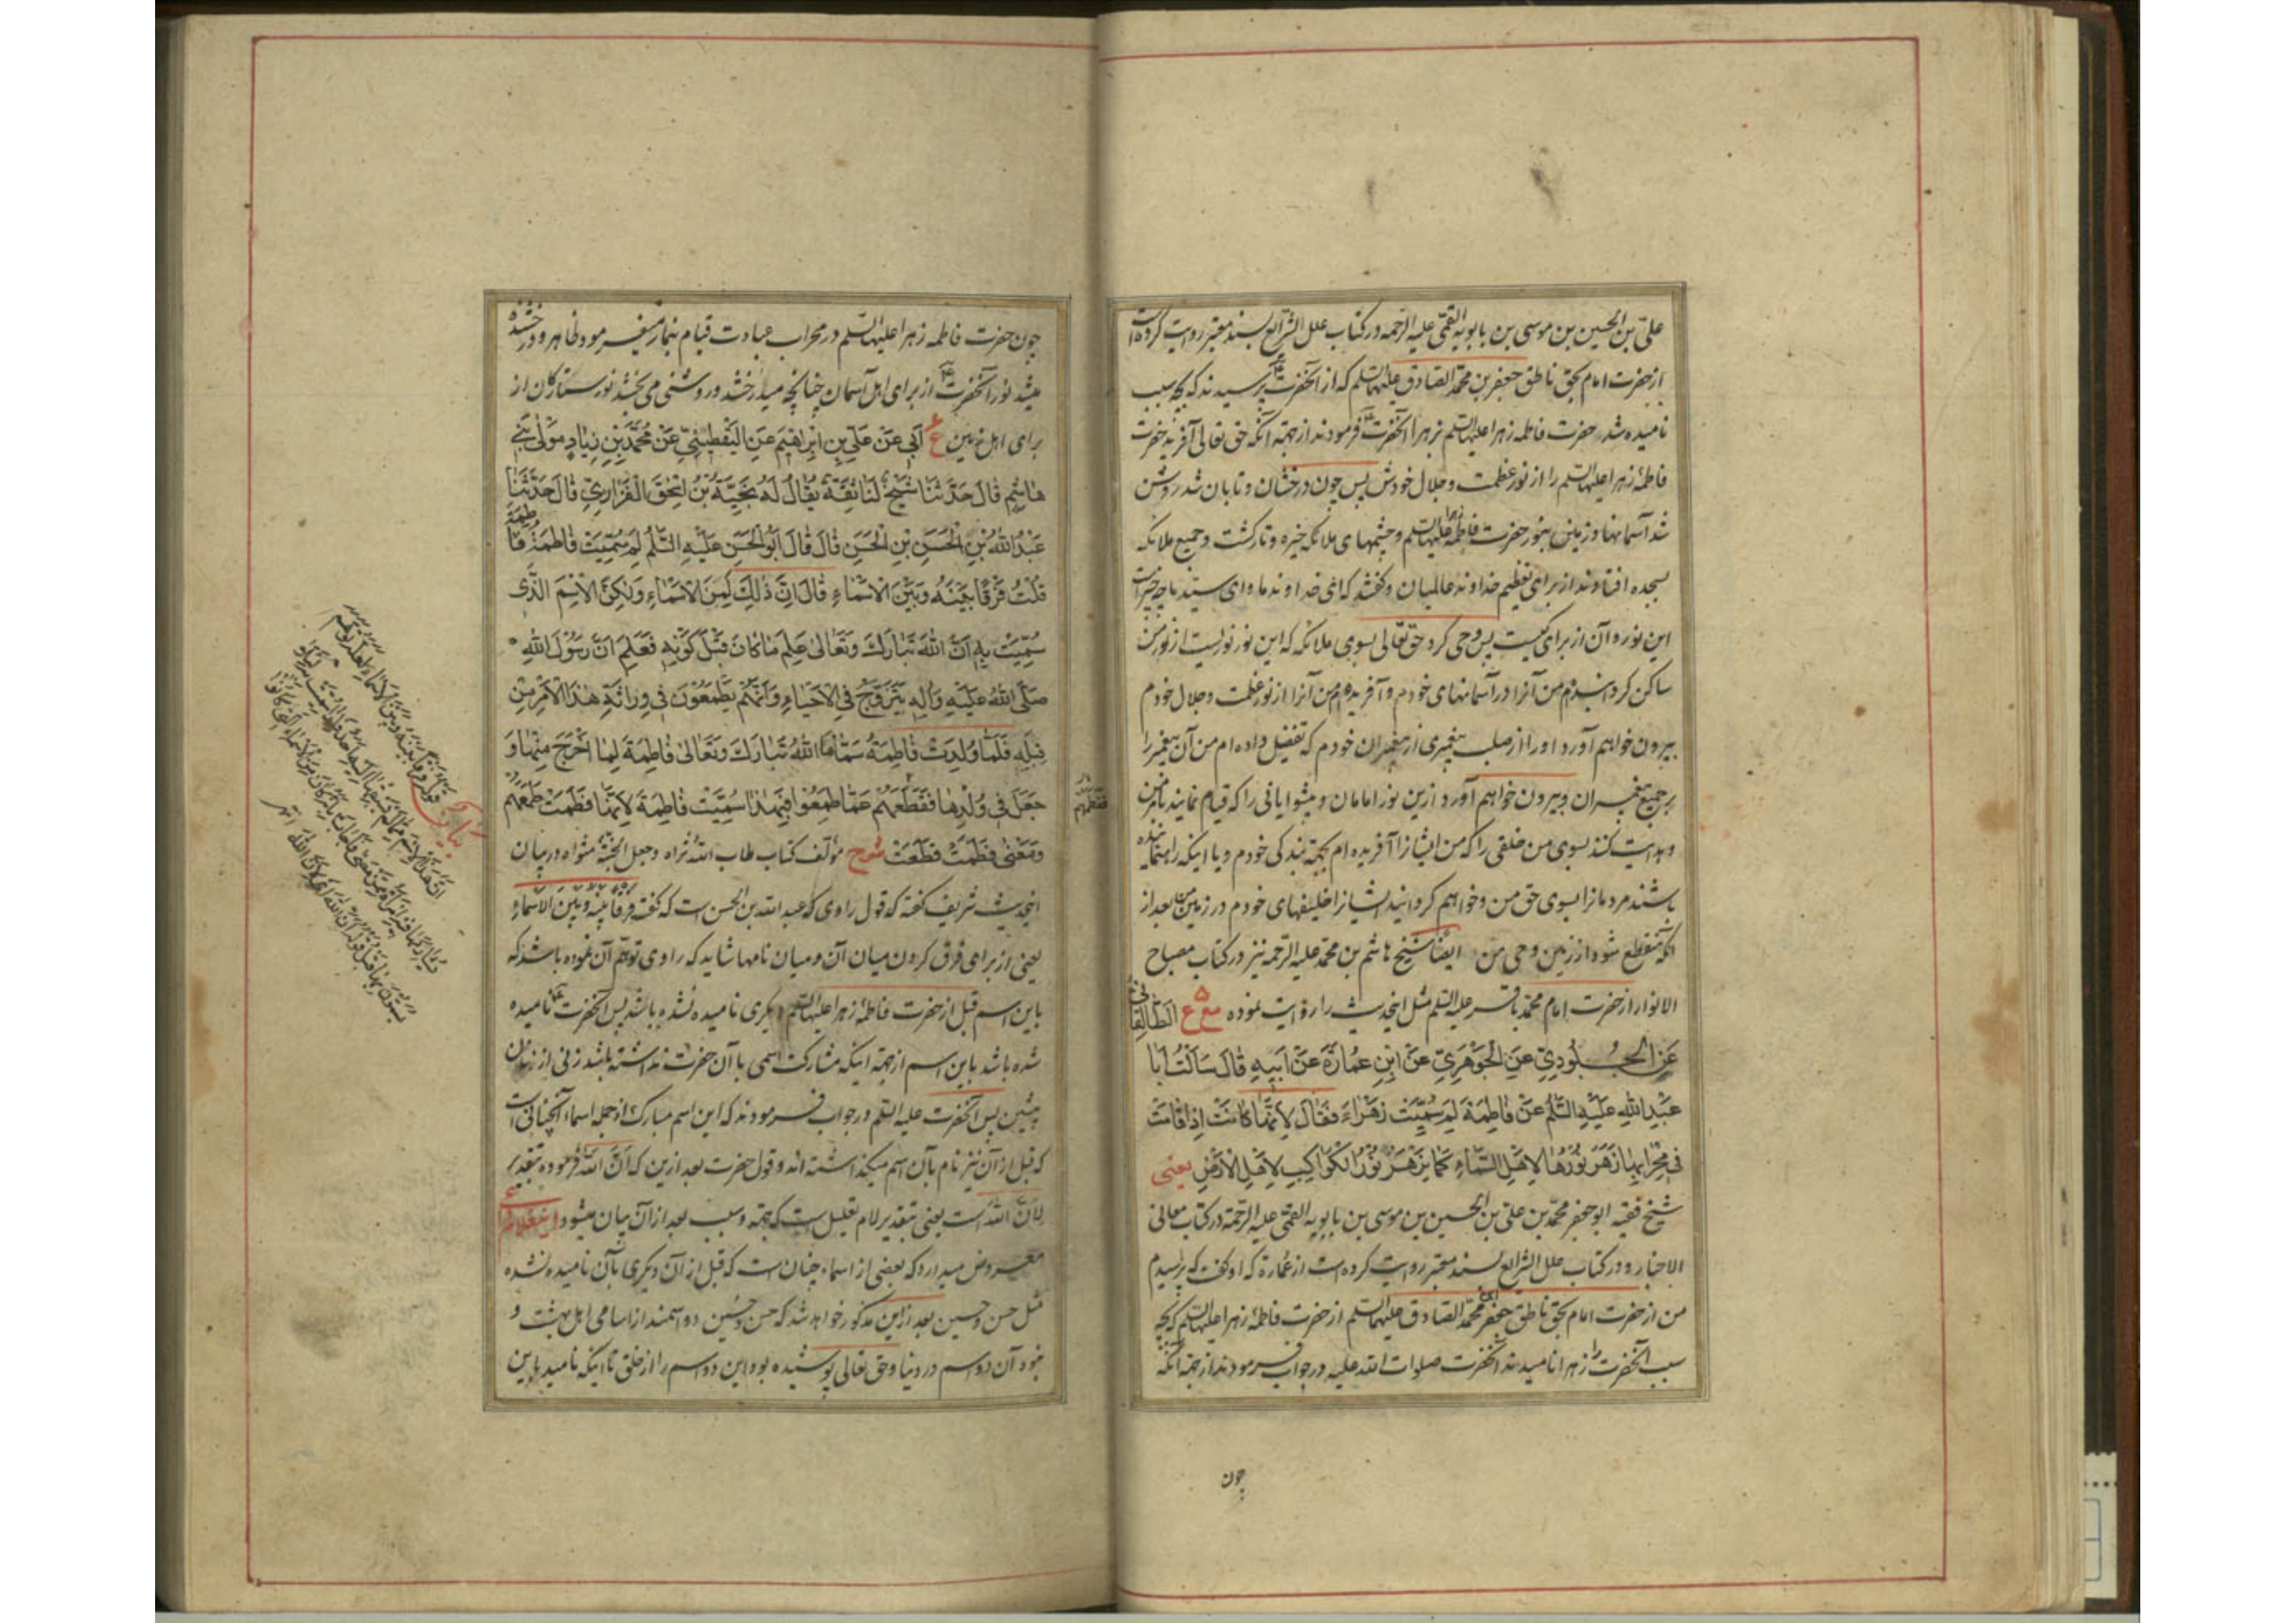 علی بن الحسین بن موسی بن بابویه القمی علیه الرحمه در کتاب علل الشرایع بسند معتبر روایت کرده است
از حضرت امام بحق ناطق جعفر بن محمد الصادق علیهما السلم که از آنحضرت پرسیدند که بچه سبب
نامیده شد حضرت فاطمه زهرا علیها السلم بزهرا آنحضرت فرمودند از جهة آنکه حق تعالی آفرید حضرت
فاطمهٔ زهرا علیها السلم را از نور عظمت و جلال خودش پس چون درخشان و تابان شد روشن
شد آسمانها و زمین بنور حضرت فاطمه علیها السلم و چشمهای ملائکه خیره و تار گشت و جمیع ملائکه
بسجده افتادند از برای تعظیم خداوند عالمیان و گفتند که ای خداوند ما و ای سید ما چه چیز است
این نور و آن از برای کیست پس وحی کرد حق تعالی بسوی ملائکه که این نور نوریست از نور من
ساکن گردانیدم من آنرا در آسمانهای خودم و آفریده‌ام من آنرا از نور عظمت و جلال خودم
بیرون خواهم آورد او را از صلب پیغمبری از پیغمبران خودم که تفضیل داده ام من آن پیغمبر را
بر جمیع پیغمبران و بیرون خواهم آورد ازین نور امامان و پیشوایانی را که قیام نمایند بامر من
و هدایت کنند بسوی من خلقی را که من ایشانرا آفریده ام بجهة بندگی خودم و یا اینکه راهنماینده
باشند مردمانرا بسوی حق من و خواهم گردانید ایشانرا خلیفهای خودم در زمین من بعد از
آنکه منقطع شود از زمین وحی من ایضا شیخ هاشم بن محمد علیه الرحمه نیز در کتاب مصباح
الانوار از حضرت امام محمد باقر علیه السلم مثل اینحدیث را روایت نموده ۵ مع ع الطالقانی
عَنِ الجلودِيِّ عَنِ الجَوْهَرِيِّ عَنْ ابْنِ عُمارَةَ عَنْ اَبيهِ قٰالَ سَاَلْتُ اَبٰا
عَبْدِ اللهِ عَلَيْهِ السَّلٰمُ عَنْ فاطِمَةَ لِمَ سُمِّيَتْ زَهْرٰاءَ فَقٰالَ لِاَنَّهٰا كٰانَتْ اِذٰا قٰامَتْ
فى مِحْرٰابِهٰا زَهَرَ نُوْرُهٰا لِاَهْلِ السَّمٰاءِ كَمٰا يَزْهَرُ نُوْرُ الكَوٰاكِبِ لِاَهْلِ الْاَرْضِ یعنی
شیخ فقیه ابو جعفر محمد بن علی بن الحسین بن موسی بن بابویه القمی علیه الرحمة در کتاب معانی
الاخبار و در کتاب علل الشرایع بسند معتبر روایت کرده است از عمارة که او گفت که پرسیدم
من از حضرت امام بحق ناطق جعفر بن محمد الصادق علیهما السلم از حضرت فاطمهٔ زهرا علیها السلم که بچه
سبب آنحضرت را زهرا نامیدند آنحضرت صلوات الله علیه در جواب فرمودند از جهة آنکه
چون
چون حضرت فاطمه زهرا علیها السلم در محراب عبادت قیام بنماز میفرمود ظاهر و درخشنده
میشد نور آنحضرت از برای اهل آسمان چنانچه میدرخشد و روشنی می بخشد نور ستارگان از
برای اهل زمین ع اَبي عَنْ عَلِيِّ بنِ اِبرٰاهيمَ عَنِ اليَقْطينيِّ عَنْ مُحَمَّدِ بْنِ زِيٰادٍ مَوْلىٰ بَني
هٰاشِمٍ قٰالَ حَدَّثَنٰا شَيْخٌ لَنٰا ثِقَةٌ يُقٰالُ لَهُ نَجِيَّةُ بْنُ اِسْحٰقَ الفَزٰارِيِّ قٰالَ حَدَّثَنٰا
عَبْدُ اللهِ بْنِ الْحَسَنِ بْنِ الْحَسَنِ قٰالَ قٰالَ اَبُو الْحَسَنِ عَلَيْهِ السَّلٰمُ لِمَ سُمِّيَتْ فٰاطِمَةُ فٰاطِمَةَ
قُلْتُ فَرْقًا بَيْنَهُ وَبَيْنَ الْاَسْمٰاءِ قٰالَ اِنَّ ذٰلِكَ لَمِنَ الْاَسْمٰاءِ وَلٰكِنَّ الْاِسْمَ الَّذى
سُمِّيَتْ بِهِ اِنَّ اللهَ تَبٰارَكَ وَتَعٰالىٰ عَلِمَ مٰا كٰانَ قَبْلَ كَوْنِهِ فَعَلِمَ اَنَّ رَسُوْلَ اللهِ
صَلَّى اللهُ عَلَيْهِ وَآلِهِ يَتَزَوَّجُ فِي الْاَحْيٰاءِ وَاَنَّهُمْ يَطْمَعُوْنَ فى وِرٰاثَةِ هٰذَا الْاَمْرِ مِنْ
قِبَلِهِ فَلَمّٰا وُلِدَتْ فٰاطِمَةُ سَمّٰاهَا اللهُ تَبٰارَكَ وَتَعٰالىٰ فٰاطِمَةَ لِمٰا اَخْرَجَ مِنْهٰا وَ
جَعَلَ فى وُلْدِهٰا فَقَطَعَهُمْ عَمّٰا طَمِعُوْا فَبِهٰذٰا سُمِّيَتْ فٰاطِمَةَ لِاَنَّهٰا فَطَمَتْ طَمَعَهُمْ
وَمَعْنىٰ فَطَمَتْ قَطَعَتْ شرح مؤلف کتاب طاب الله ثراه و جعل الجنة مثواه در بیان
اینحدیث شریف گفته که قول راوی که عبد الله بن الحسن است که گفته فَرْقًا بَيْنَهُ وَبَيْنَ الْاَسْمٰاءِ
یعنی از برای فرق کردن میان آن و میان نامها شاید که راوی توهم آن نموده باشد که
باین اسم قبل از حضرت فاطمهٔ زهرا علیها السلم دیگری نامیده نشده باشد پس آنحضرت نامیده
شده باشد باین اسم از جهة اینکه مشارکت اسمی با آن حضرت نداشته باشد زنی از زنان
پیشین پس آنحضرت علیه السلم در جواب فرمودند که این اسم مبارک از جمله اسماء آنچنانی است
که قبل از آن نیز نام بآن اسم میگذاشته اند و قول حضرت بعد ازین که اَنَّ الله فرموده بتقدیر
لِاَنَّ الله است یعنی بتقدیر لام تعلیل است که جهة و سبب بعد از آن بیان میشود
معروض میدارد که بعضی از اسماء چنان است که قبل از آن دیگری بآن نامیده نشده
مثل حسن و حسین بعد ازین مذکور خواهد شد که حسن و حسین دو اسمند از اسامی اهل بهشت و
نبود آن دو اسم در دنیا و حق تعالی پوشیده بود این دو اسم را از خلق تا اینکه نامید باین